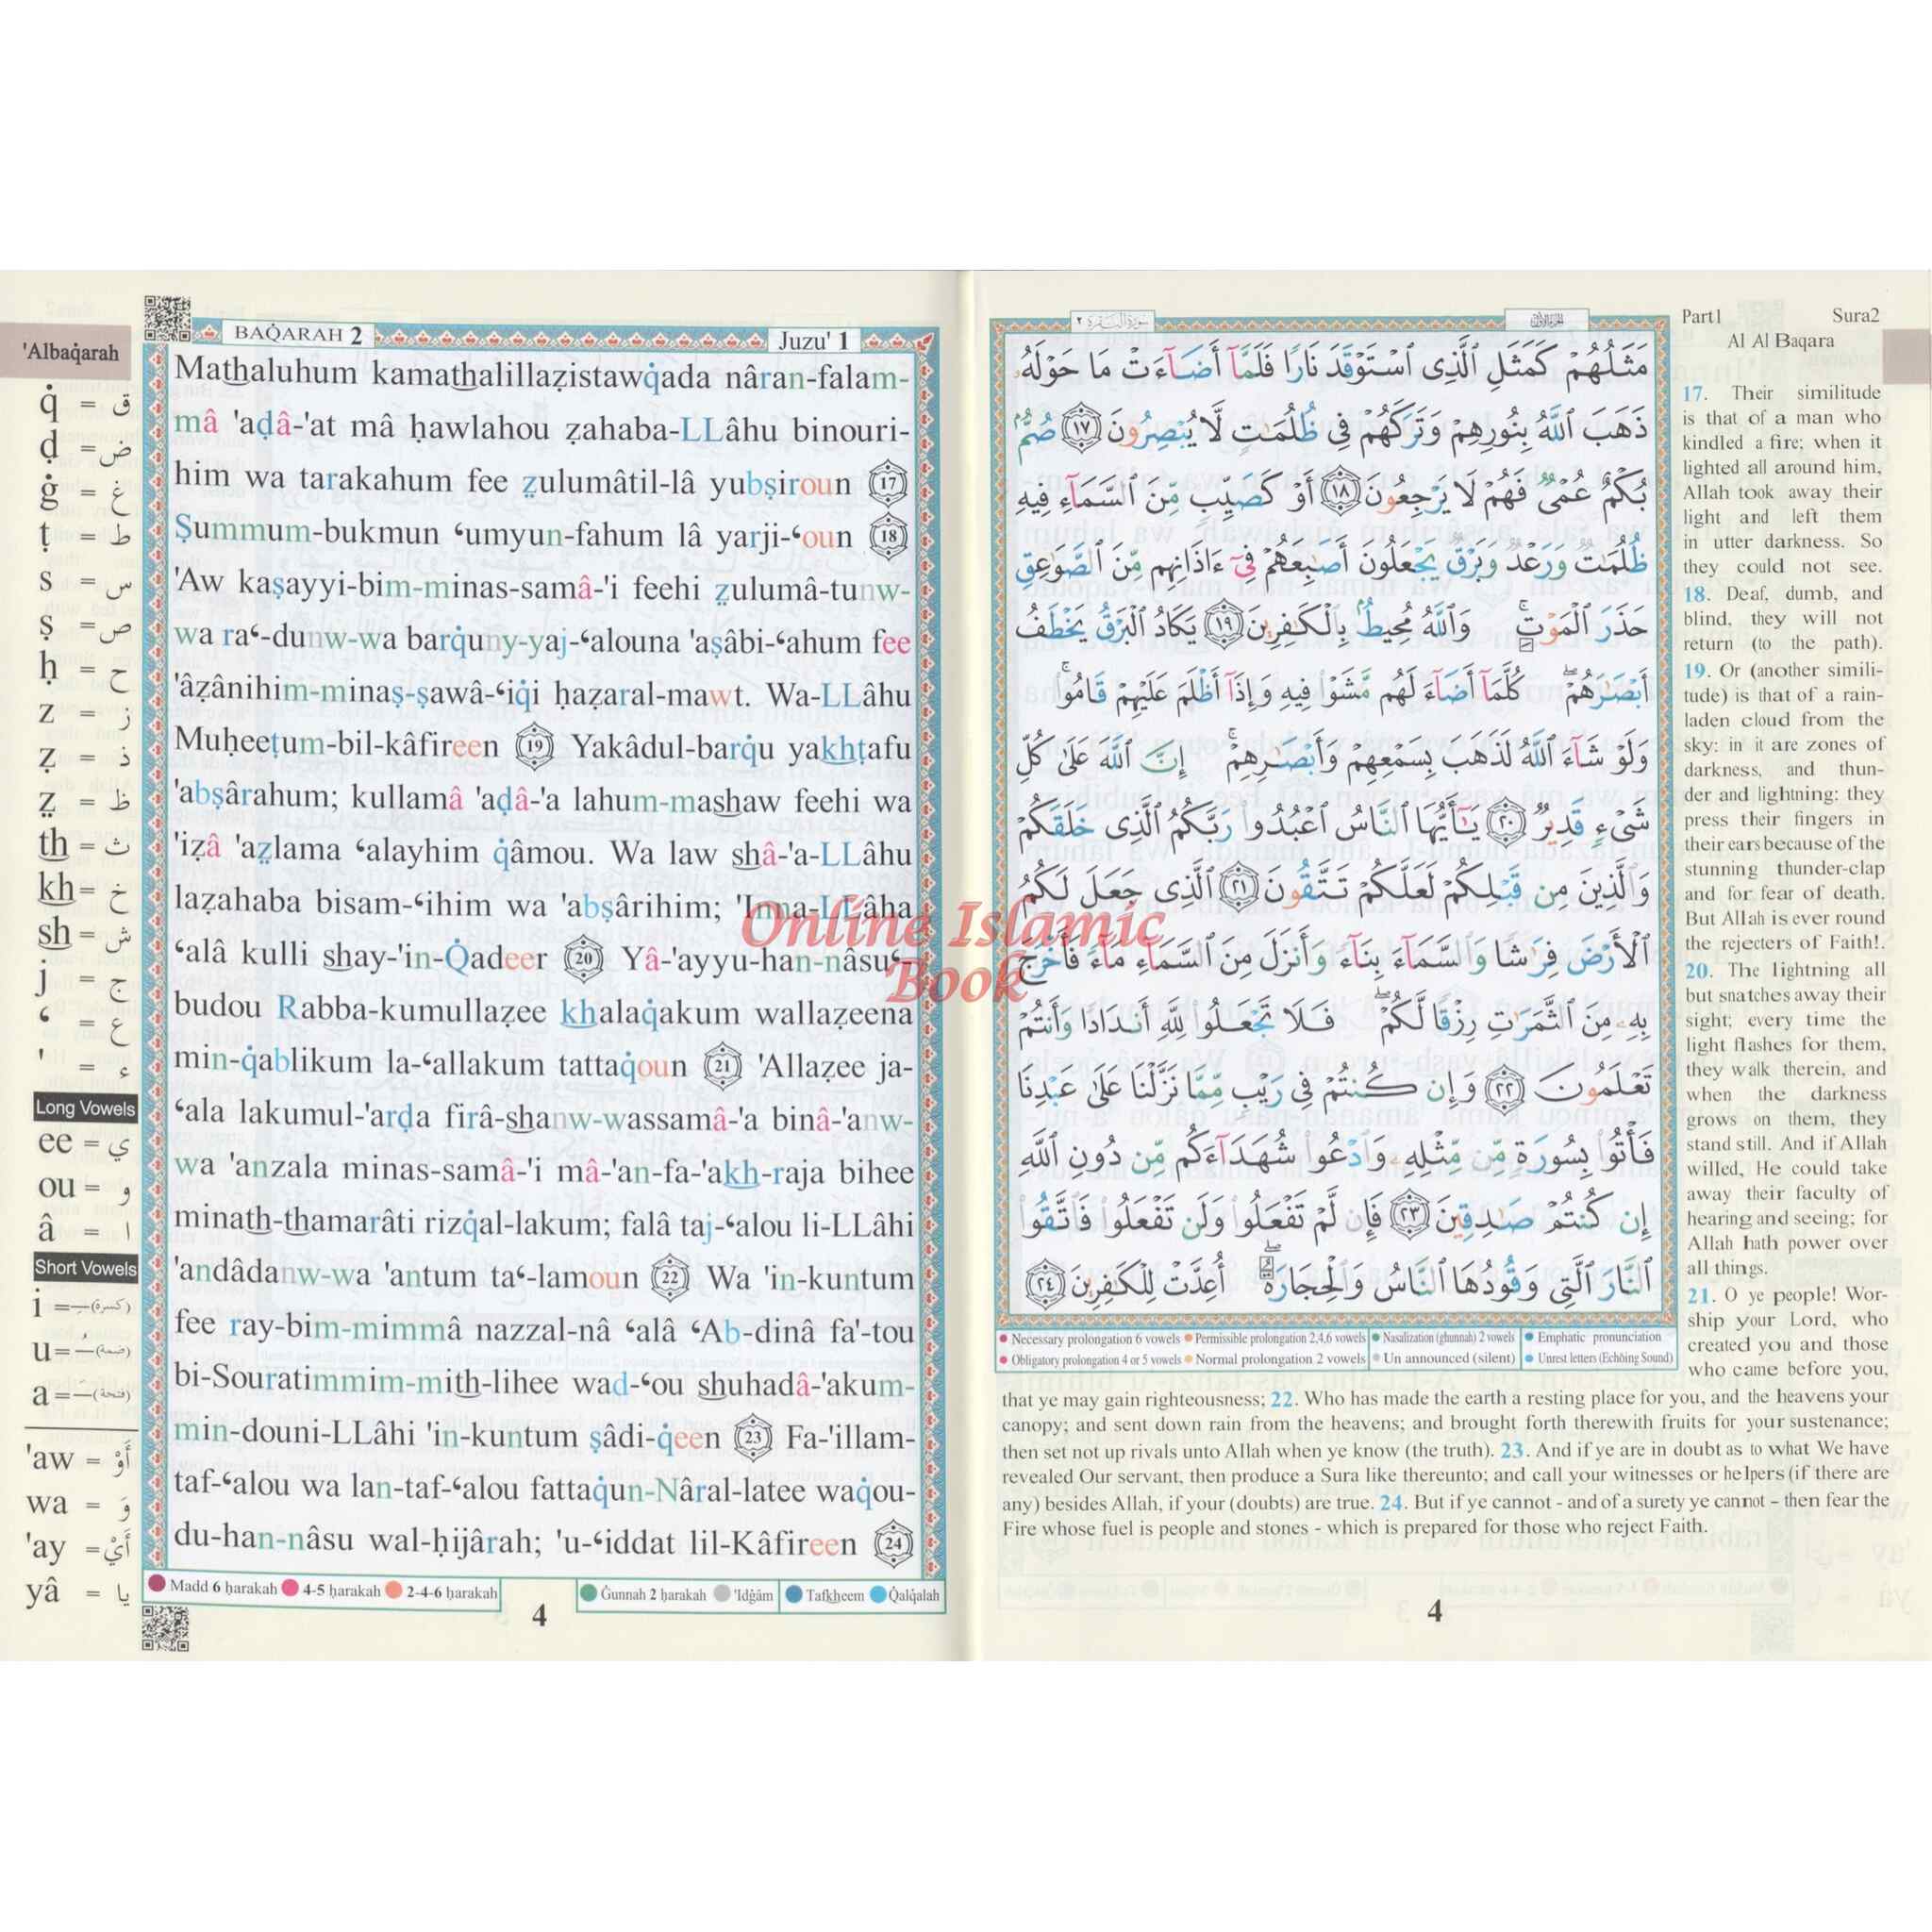 'Albaqarah
q̇ = ق
ḍ = ض
ġ = غ
ṭ = ط
s = س
ṣ = ص
ḥ = ح
z = ز
ẓ = ذ
ẕ = ظ
th = ث
kh = خ
sh = ش
j = ج
‘ = ع
' = ء
Long Vowels
ee = ي
ou = و
â = ا
Short Vowels
i = ـِ (كسرة)
u = ـُ (ضمة)
a = ـَ (فتحة)
'aw = أَوْ
wa = وَ
'ay = أَيْ
yâ = يا
BAQ̇ARAH 2
Juzu' 1
Mathaluhum kamathalillaẓistawq̇ada nâran-falam-
mâ 'aḍâ-'at mâ ḥawlahou ẓahaba-LLâhu binouri-
him wa tarakahum fee ẕulumâtil-lâ yubṣiroun 17
Ṣummum-bukmun ‘umyun-fahum lâ yarji-‘oun 18
'Aw kaṣayyi-bim-minas-samâ-'i feehi ẕulumâ-tunw-
wa ra‘-dunw-wa barq̇uny-yaj-‘alouna 'aṣâbi-‘ahum fee
'âẓânihim-minaṣ-ṣawâ-‘iq̇i ḥaẓaral-mawt. Wa-LLâhu
Muḥeeṭum-bil-kâfireen 19 Yakâdul-barq̇u yakhṭafu
'abṣârahum; kullamâ 'aḍâ-'a lahum-mashaw feehi wa
'iẓâ 'aẕlama ‘alayhim q̇âmou. Wa law shâ-'a-LLâhu
laẓahaba bisam-‘ihim wa 'abṣârihim; 'Inna-LLâha
‘alâ kulli shay-'in-Q̇adeer 20 Yâ-'ayyu-han-nâsu‘-
budou Rabba-kumullaẓee khalaq̇akum wallaẓeena
min-q̇ablikum la-‘allakum tattaq̇oun 21 'Allaẓee ja-
‘ala lakumul-'arḍa firâ-shanw-wassamâ-'a binâ-'anw-
wa 'anzala minas-samâ-'i mâ-'an-fa-'akh-raja bihee
minath-thamarâti rizq̇al-lakum; falâ taj-‘alou li-LLâhi
'andâdanw-wa 'antum ta‘-lamoun 22 Wa 'in-kuntum
fee ray-bim-mimmâ nazzal-nâ ‘alâ ‘Ab-dinâ fa'-tou
bi-Souratimmim-mith-lihee wad-‘ou shuhadâ-'akum-
min-douni-LLâhi 'in-kuntum ṣâdi-q̇een 23 Fa-'illam-
taf-‘alou wa lan-taf-‘alou fattaq̇un-Nâral-latee waq̇ou-
du-han-nâsu wal-ḥijârah; 'u-‘iddat lil-Kâfireen 24
Madd 6 ḥarakah 4-5 ḥarakah 2-4-6 ḥarakah
Ġunnah 2 ḥarakah 'Idġâm Tafkheem Q̇alq̇alah
4
سورة البقرة ٢
الجزء الأول
مَثَلُهُمْ كَمَثَلِ ٱلَّذِى ٱسْتَوْقَدَ نَارًا فَلَمَّآ أَضَآءَتْ مَا حَوْلَهُۥ
ذَهَبَ ٱللَّهُ بِنُورِهِمْ وَتَرَكَهُمْ فِى ظُلُمَٰتٍ لَّا يُبْصِرُونَ ١٧ صُمٌّۢ
بُكْمٌ عُمْىٌ فَهُمْ لَا يَرْجِعُونَ ١٨ أَوْ كَصَيِّبٍ مِّنَ ٱلسَّمَآءِ فِيهِ
ظُلُمَٰتٌ وَرَعْدٌ وَبَرْقٌ يَجْعَلُونَ أَصَٰبِعَهُمْ فِىٓ ءَاذَانِهِم مِّنَ ٱلصَّوَٰعِقِ
حَذَرَ ٱلْمَوْتِ ۚ وَٱللَّهُ مُحِيطٌۢ بِٱلْكَٰفِرِينَ ١٩ يَكَادُ ٱلْبَرْقُ يَخْطَفُ
أَبْصَٰرَهُمْ ۖ كُلَّمَآ أَضَآءَ لَهُم مَّشَوْا۟ فِيهِ وَإِذَآ أَظْلَمَ عَلَيْهِمْ قَامُوا۟ ۚ
وَلَوْ شَآءَ ٱللَّهُ لَذَهَبَ بِسَمْعِهِمْ وَأَبْصَٰرِهِمْ ۚ إِنَّ ٱللَّهَ عَلَىٰ كُلِّ
شَىْءٍ قَدِيرٌ ٢٠ يَٰٓأَيُّهَا ٱلنَّاسُ ٱعْبُدُوا۟ رَبَّكُمُ ٱلَّذِى خَلَقَكُمْ
وَٱلَّذِينَ مِن قَبْلِكُمْ لَعَلَّكُمْ تَتَّقُونَ ٢١ ٱلَّذِى جَعَلَ لَكُمُ
ٱلْأَرْضَ فِرَٰشًا وَٱلسَّمَآءَ بِنَآءً وَأَنزَلَ مِنَ ٱلسَّمَآءِ مَآءً فَأَخْرَجَ
بِهِۦ مِنَ ٱلثَّمَرَٰتِ رِزْقًا لَّكُمْ ۖ فَلَا تَجْعَلُوا۟ لِلَّهِ أَندَادًا وَأَنتُمْ
تَعْلَمُونَ ٢٢ وَإِن كُنتُمْ فِى رَيْبٍ مِّمَّا نَزَّلْنَا عَلَىٰ عَبْدِنَا
فَأْتُوا۟ بِسُورَةٍ مِّن مِّثْلِهِۦ وَٱدْعُوا۟ شُهَدَآءَكُم مِّن دُونِ ٱللَّهِ
إِن كُنتُمْ صَٰدِقِينَ ٢٣ فَإِن لَّمْ تَفْعَلُوا۟ وَلَن تَفْعَلُوا۟ فَٱتَّقُوا۟
ٱلنَّارَ ٱلَّتِى وَقُودُهَا ٱلنَّاسُ وَٱلْحِجَارَةُ ۖ أُعِدَّتْ لِلْكَٰفِرِينَ ٢٤
Necessary prolongation 6 vowels Permissible prolongation 2,4,6 vowels Nasalization (ghunnah) 2 vowels Emphatic pronunciation
Obligatory prolongation 4 or 5 vowels Normal prolongation 2 vowels Un announced (silent) Unrest letters (Echoing Sound)
Part1 Sura2
Al Al Baqara
17. Their similitude
is that of a man who
kindled a fire; when it
lighted all around him,
Allah took away their
light and left them
in utter darkness. So
they could not see.
18. Deaf, dumb, and
blind, they will not
return (to the path).
19. Or (another simili-
tude) is that of a rain-
laden cloud from the
sky: in it are zones of
darkness, and thun-
der and lightning: they
press their fingers in
their ears because of the
stunning thunder-clap
and for fear of death.
But Allah is ever round
the rejecters of Faith!.
20. The lightning all
but snatches away their
sight; every time the
light flashes for them,
they walk therein, and
when the darkness
grows on them, they
stand still. And if Allah
willed, He could take
away their faculty of
hearing and seeing; for
Allah hath power over
all things.
21. O ye people! Wor-
ship your Lord, who
created you and those
who came before you,
that ye may gain righteousness; 22. Who has made the earth a resting place for you, and the heavens your
canopy; and sent down rain from the heavens; and brought forth therewith fruits for your sustenance;
then set not up rivals unto Allah when ye know (the truth). 23. And if ye are in doubt as to what We have
revealed Our servant, then produce a Sura like thereunto; and call your witnesses or helpers (if there are
any) besides Allah, if your (doubts) are true. 24. But if ye cannot - and of a surety ye cannot - then fear the
Fire whose fuel is people and stones - which is prepared for those who reject Faith.
4
Online Islamic
Book